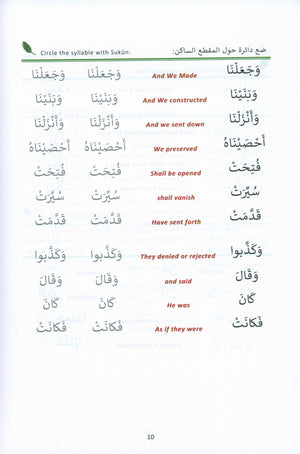 Circle the syllable with Sukūn: ضع دائرة حول المقطع الساكن:
وَجَعَلْنَا And We Made وَجَعَلْنَا وَجَعَلْنَا
وَبَنَيْنَا And We constructed وَبَنَيْنَا وَبَنَيْنَا
وَأَنْزَلْنَا and we sent down وَأَنْزَلْنَا وَأَنْزَلْنَا
أَحْصَيْنَاهُ We preserved أَحْصَيْنَاهُ أَحْصَيْنَاهُ
فُتِحَتْ Shall be opened فُتِحَتْ فُتِحَتْ
سُيِّرَتْ shall vanish سُيِّرَتْ سُيِّرَتْ
قَدَّمَتْ Have sent forth قَدَّمَتْ قَدَّمَتْ
وَكَذَّبوا They denied or rejected وَكَذَّبوا وَكَذَّبوا
وَقَالَ and said وَقَالَ وَقَالَ
كَانَ He was كَانَ كَانَ
فَكَانَتْ As if they were فَكَانَتْ فَكَانَتْ
10